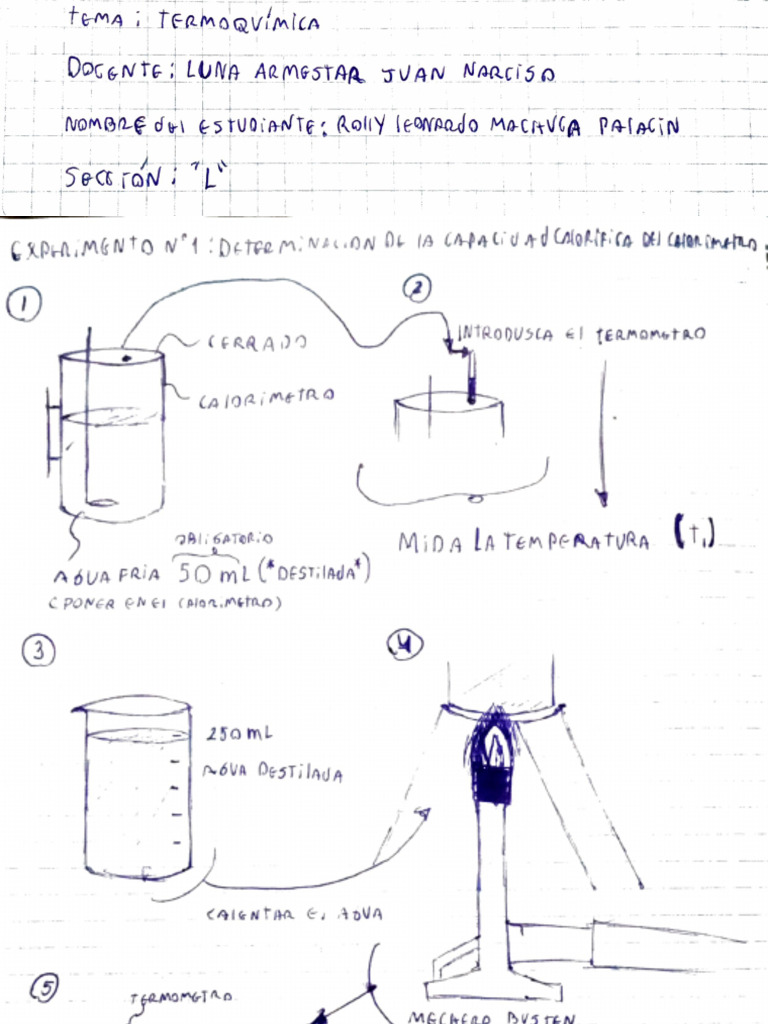 TEMA: TERMOQUÍMICA
DOCENTE: LUNA ARMESTAR JUAN NARCISO
NOMBRE del ESTUDIANTE: Rolly leonardo MACHUCA PALACIN
SECCIÓN: "L"
EXPERIMENTO N°1: DETERMINACION DE LA CAPACIDAD CALORÍFICA DEL CALORIMETRO:
1
CERRADO
CALORIMETRO
OBLIGATORIO
AGUA FRIA 50 mL (*DESTILADA*)
(PONER EN El CALORIMETRO)
2
INTRODUSCA El TERMOMETRO
MIDA LA TEMPERATURA (t1)
3
250 mL
AGUA DESTILADA
CALENTAR El AGUA
4
MECHERO BUSTEN
5
TERMOMETRO